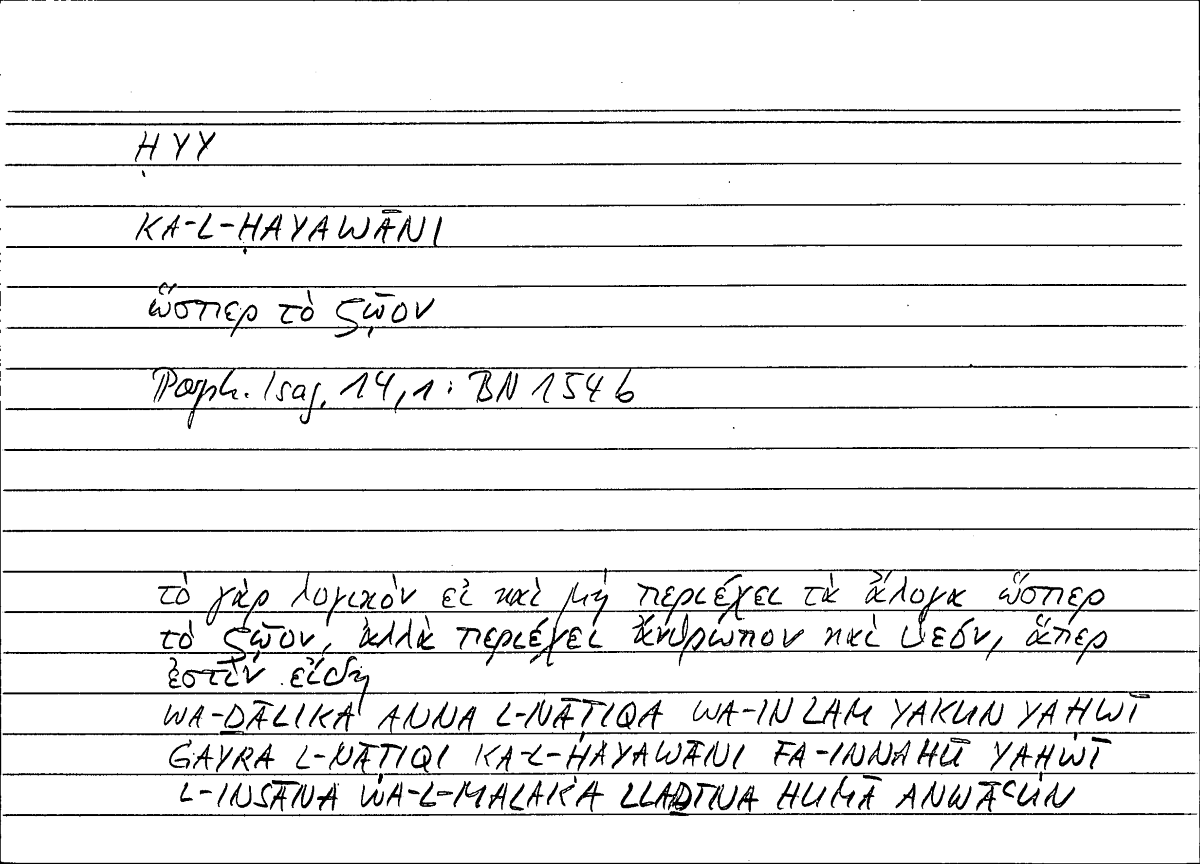 ḤYY
KA-L-ḤAYAWĀNI
ὥσπερ τὸ ζῷον
Porph. Isag. 14,1: BN 154 b
τὸ γὰρ λογικὸν εἰ καὶ μὴ περιέχει τὰ ἄλογα ὥσπερ
τὸ ζῷον, ἀλλὰ περιέχει ἄνθρωπον καὶ θεόν, ἅπερ
ἐστὶν εἴδη
WA-ḎĀLIKA ANNA L-NĀṬIQA WA-IN LAM YAKUN YAḤWĪ
ĠAYRA L-NĀṬIQI KA-L-ḤAYAWĀNI FA-INNAHŪ YAḤWĪ
L-INSĀNA WA-L-MALAKA LLAḎĪNA HUMĀ ANWĀʿUN